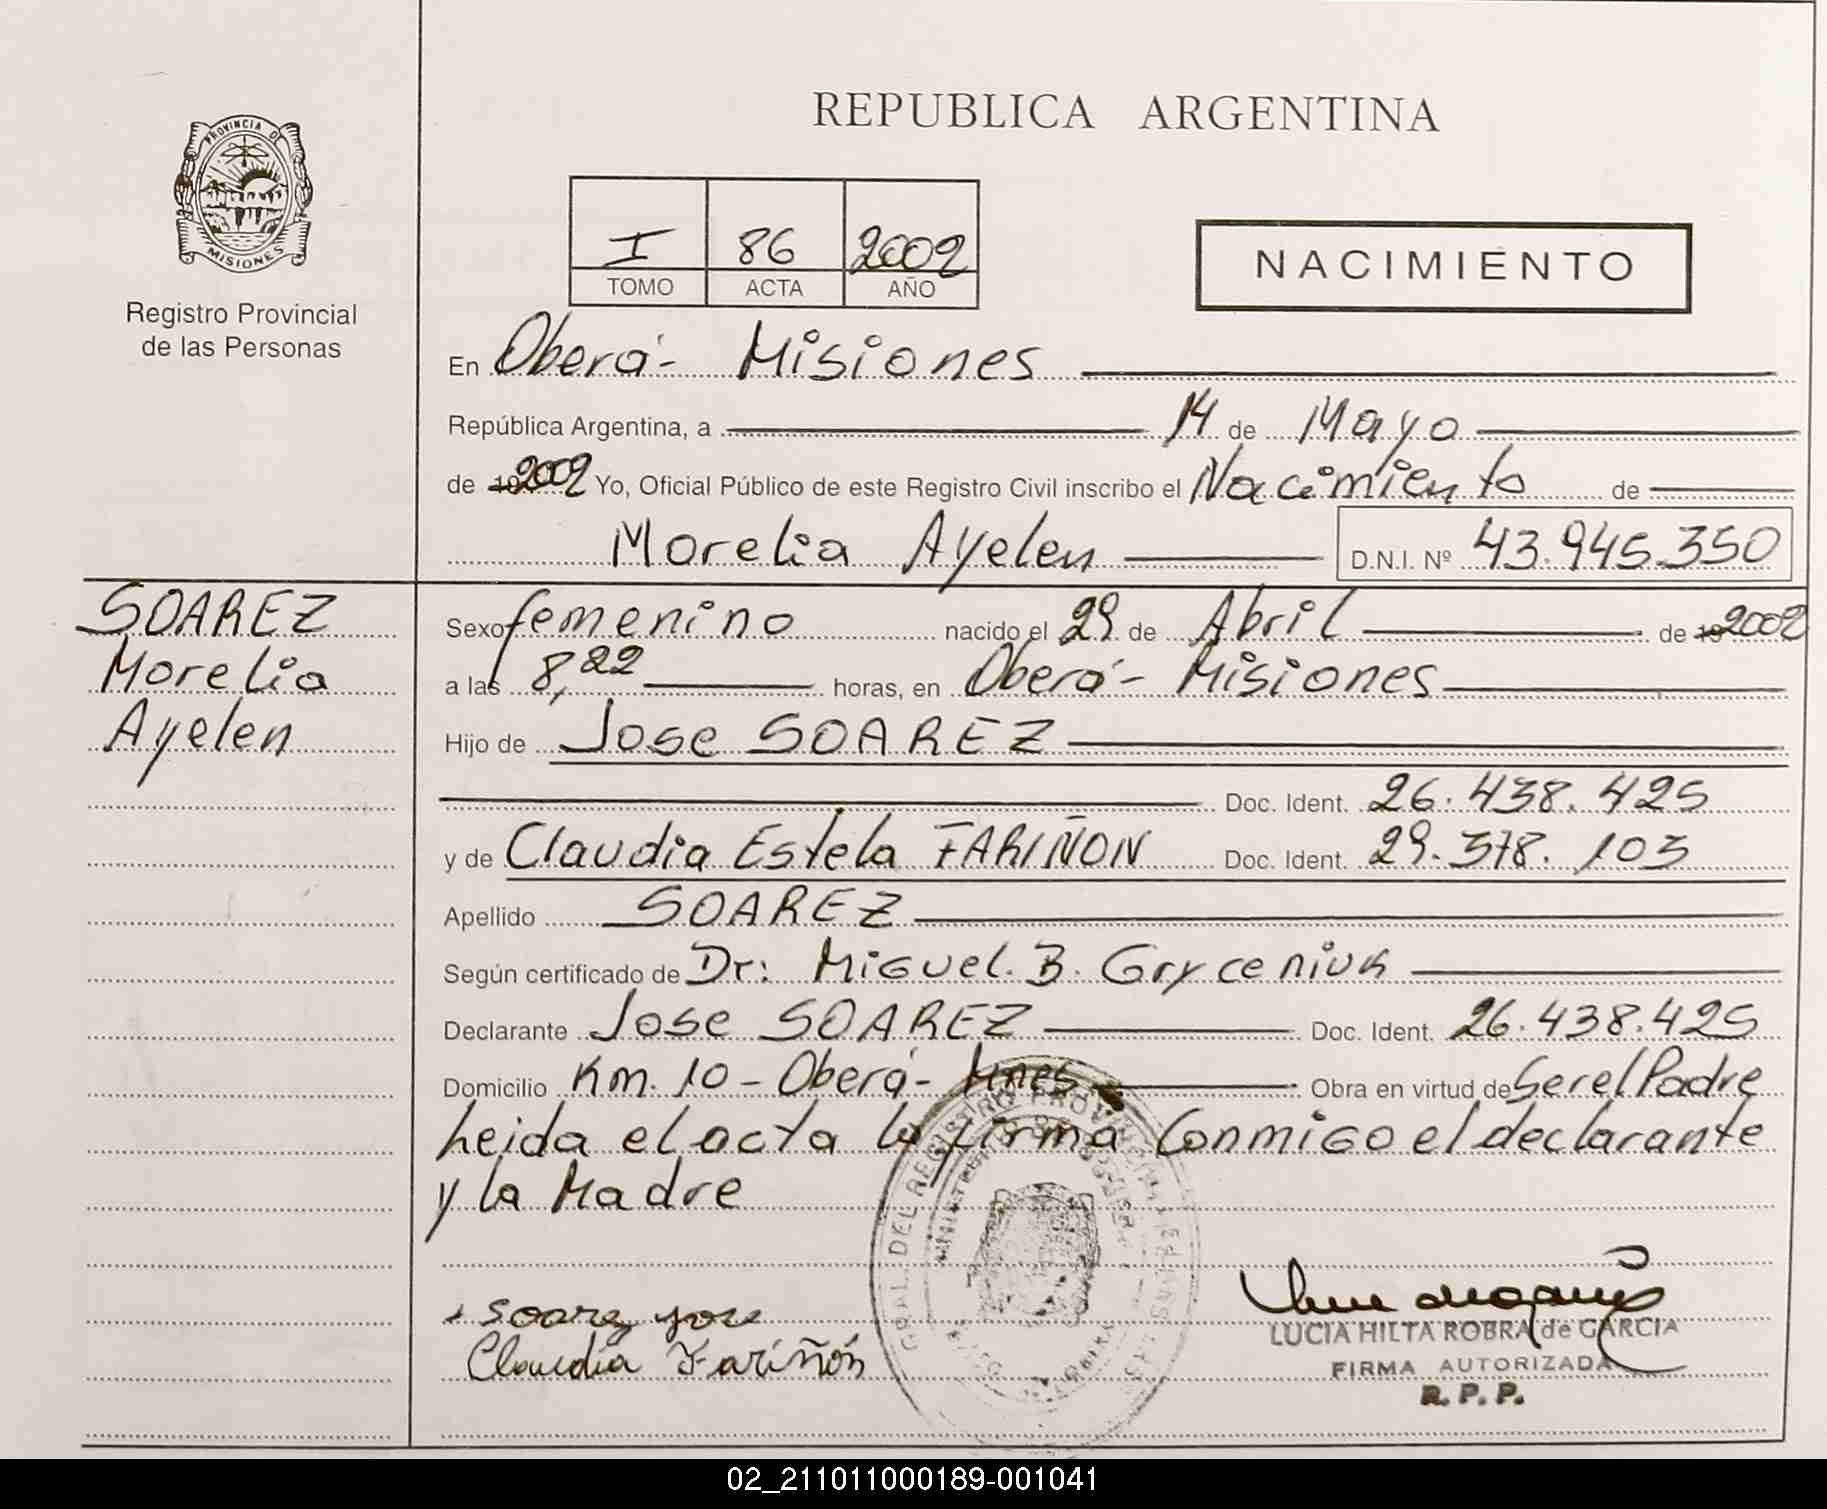 REPUBLICA ARGENTINA
PROVINCIA DE
MISIONES
Registro Provincial
de las Personas
I 86 2002
TOMO ACTA AÑO
NACIMIENTO
En Oberá - Misiones
República Argentina, a 14 de Mayo
de 2002 Yo, Oficial Público de este Registro Civil inscribo el Nacimiento de
Morelia Ayelen D.N.I. Nº 43.945.350
SOAREZ
Morelia
Ayelen
Sexo femenino nacido el 29 de Abril de 19 2002
a las 8,22 horas, en Oberá - Misiones
Hijo de Jose SOAREZ
Doc. Ident. 26.438.425
y de Claudia Estela FARIÑON Doc. Ident. 29.378.103
Apellido SOAREZ
Según certificado de Dr: Miguel. B. Gryceniuk
Declarante Jose SOAREZ Doc. Ident. 26.438.425
Domicilio Km. 10 - Oberá - Mnes Obra en virtud de Ser el Padre
Leida el acta la firma Conmigo el declarante
y la Madre
GRAL. DEL REGISTRO PROVINCIAL
Soarez jose
Claudia Fariñón
LUCIA HILTA ROBRA de GARCIA
FIRMA AUTORIZADA
R. P. P.
02_211011000189-001041